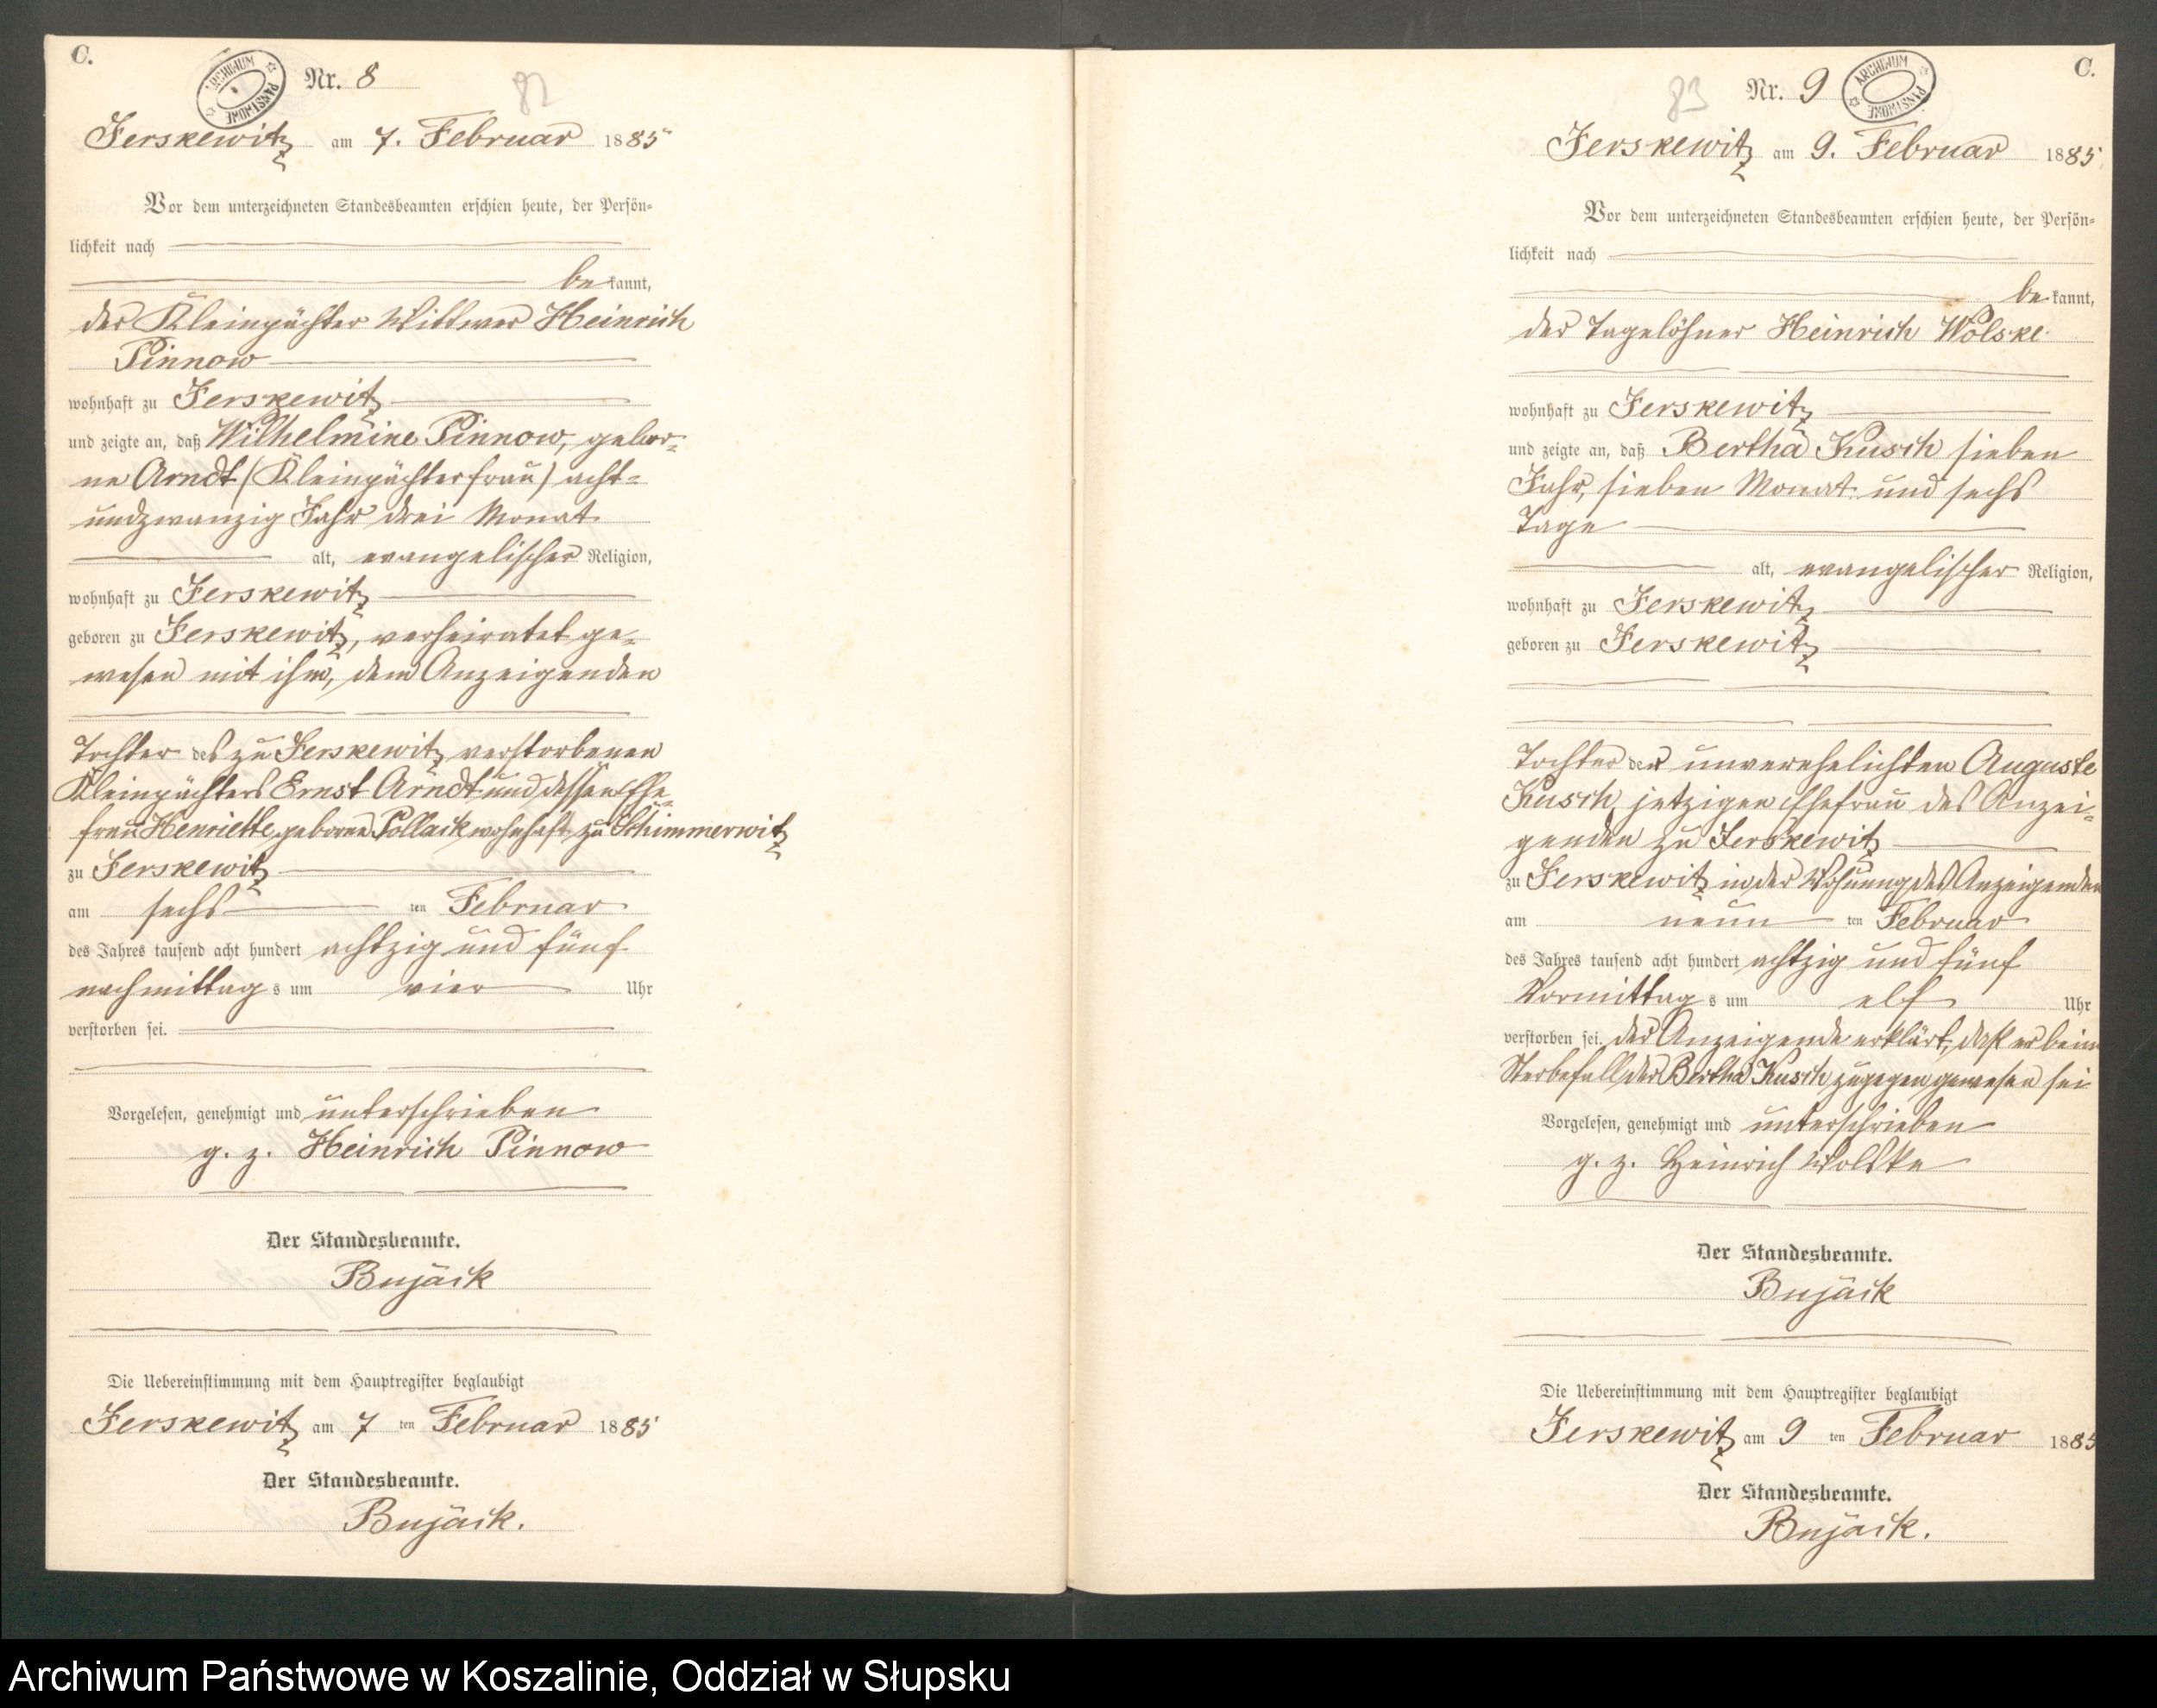 C.
ARCHIWUM PAŃSTWOWE
Nr. 8
82
Jerskewitz am 7. Februar 1885
Vor dem unterzeichneten Standesbeamten erschien heute, der Persön-
lichkeit nach
bekannt,
der Kleinpächter Wittwer Heinrich
Pinnow
wohnhaft zu Jerskewitz
und zeigte an, daß Wilhelmine Pinnow, gebor-
ne Arndt (Kleinpächterfrau) acht-
undzwanzig Jahr drei Monat
alt, evangelischer Religion,
wohnhaft zu Jerskewitz
geboren zu Jerskewitz, verheiratet ge-
wesen mit ihm, dem Anzeigenden
Tochter des zu Jerskewitz verstorbenen
Kleinpächters Ernst Arndt und dessen Ehe-
frau Henriette geborne Pollack wohnhaft zu Schimmerwitz
zu Jerskewitz
am sechs ten Februar
des Jahres tausend acht hundert achtzig und fünf
nachmittags um vier Uhr
verstorben sei.
Vorgelesen, genehmigt und unterschrieben
g. z. Heinrich Pinnow
Der Standesbeamte.
Bujäck
Die Uebereinstimmung mit dem Hauptregister beglaubigt
Jerskewitz am 7 ten Februar 1885
Der Standesbeamte.
Bujäck.
C.
83
Nr. 9
ARCHIWUM PAŃSTWOWE
Jerskewitz am 9. Februar 1885
Vor dem unterzeichneten Standesbeamten erschien heute, der Persön-
lichkeit nach
bekannt,
der Tagelöhner Heinrich Wolske
wohnhaft zu Jerskewitz
und zeigte an, daß Bertha Kusch sieben
Jahr, sieben Monat und sechs
Tage
alt, evangelischer Religion,
wohnhaft zu Jerskewitz
geboren zu Jerskewitz
Tochter der unverehelichten Auguste
Kusch, jetzigen Ehefrau des Anzei-
genden zu Jerskewitz
zu Jerskewitz in der Wohnung des Anzeigenden
am neun ten Februar
des Jahres tausend acht hundert achtzig und fünf
Vormittags um elf Uhr
verstorben sei. der Anzeigende erklärt, daß er beim
Sterbefall der Bertha Kusch zugegen gewesen sei
Vorgelesen, genehmigt und unterschrieben
g. z. Heinrich Wolske
Der Standesbeamte.
Bujäck
Die Uebereinstimmung mit dem Hauptregister beglaubigt
Jerskewitz am 9 ten Februar 1885
Der Standesbeamte.
Bujäck.
Archiwum Państwowe w Koszalinie, Oddział w Słupsku